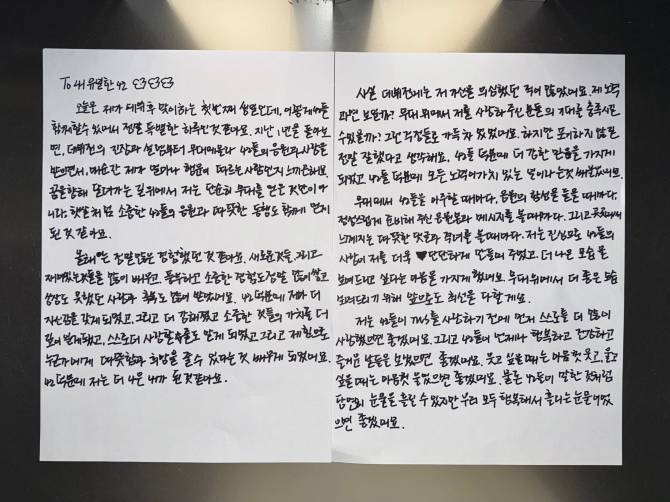 To 내 유일한 42
오늘은 제가 데뷔후 맞이하는 첫번째 생일인데, 이렇게 42들
함께할 수 있어서 정말 특별한 하루인 것 같아요. 지난 1년을 돌아보
면, 데뷔전의 긴장과 설렘부터 무대에 올라 42들의 응원과 사랑을
받으면서, 매순간 제가 얼마나 행운이 따르는 사람인지 느끼곤해요.
꿈을향해 달려가는 길위에서 저는 단순히 무대를 얻은 것만이 아
니라, 햇살처럼 소중한 42들의 응원과 따뜻한 동행도 함께 얻게
된 것 같아요.
올해는 정말 많은 경험했던 것 같아요. 새로운것들, 그리고
재미있는것들을 많이 배우고, 풍부하고 소중한 경험도 정말 많이 쌓고
상상도 못했던 사랑과 도 많이 받았어요. 42 덕분에 제가 더
자신감을 갖게 되었고, 그리고 더 강해졌고 소중한 것들의 가치를 더
깊이 알게됐고, 스스로 더 사랑할 수록도 알게 되었고 그리고 제 힘으로
누군가에게 따뜻함과 희망을 줄수 있다는 것 배우게 되었어요.
42 덕분에 저는 더 나은 내가 된 것 같아요.
사실 데뷔전에는 저 자신을 의심했던 적이 많았어요. 제 노력
과연 보일까? 무대 위에서 저를 사랑해 주신 분들의 기대를 충족시킬
수있을까? 그런 걱정들로 가득차 있었어요. 하지만 포기하지 않길
정말 잘했다고 생각해요. 42들 덕분에 더 강한 믿음을 가지게
되었고 42들 덕분에 모든 노력이 가치 있는 일이라는것 배웠어요.
무대에서 42들을 마주할 때마다, 응원의 함성을 들을 때마다,
정성스럽게 준비해 주신 응원봉과 메시지를 볼때마다, 그리고 곳곳에서
느껴지는 따뜻한 댓글과 격려를 볼때마다. 저는 진심으로 42들의
사랑이 저를 더욱 ♥ 단단하게 만들어 주었고, 더 나은 모습 을
보여드리고 싶다는 마음을 가지게 했어요. 무대위에서 더 좋은 모습
보여드리기 위해 앞으로도 최선을 다할게요.
저는 42들이 TWS를 사랑하기 전에 먼저 스스로를 더 많이
사랑했으면 좋겠어요. 그리고 42들이 언제나 행복하고 건강하고
즐거운 날들을 보냈으면 좋겠어요. 웃고 싶을때는 마음껏 웃고, 울고
싶을 때는 마음껏 울었으면 좋겠어요. 물론 42들이 말한 것처럼
당연히 눈물을 흘릴 수 있지만 우리 모두 행복해서 흘리는 눈물이었
으면 좋겠어요.